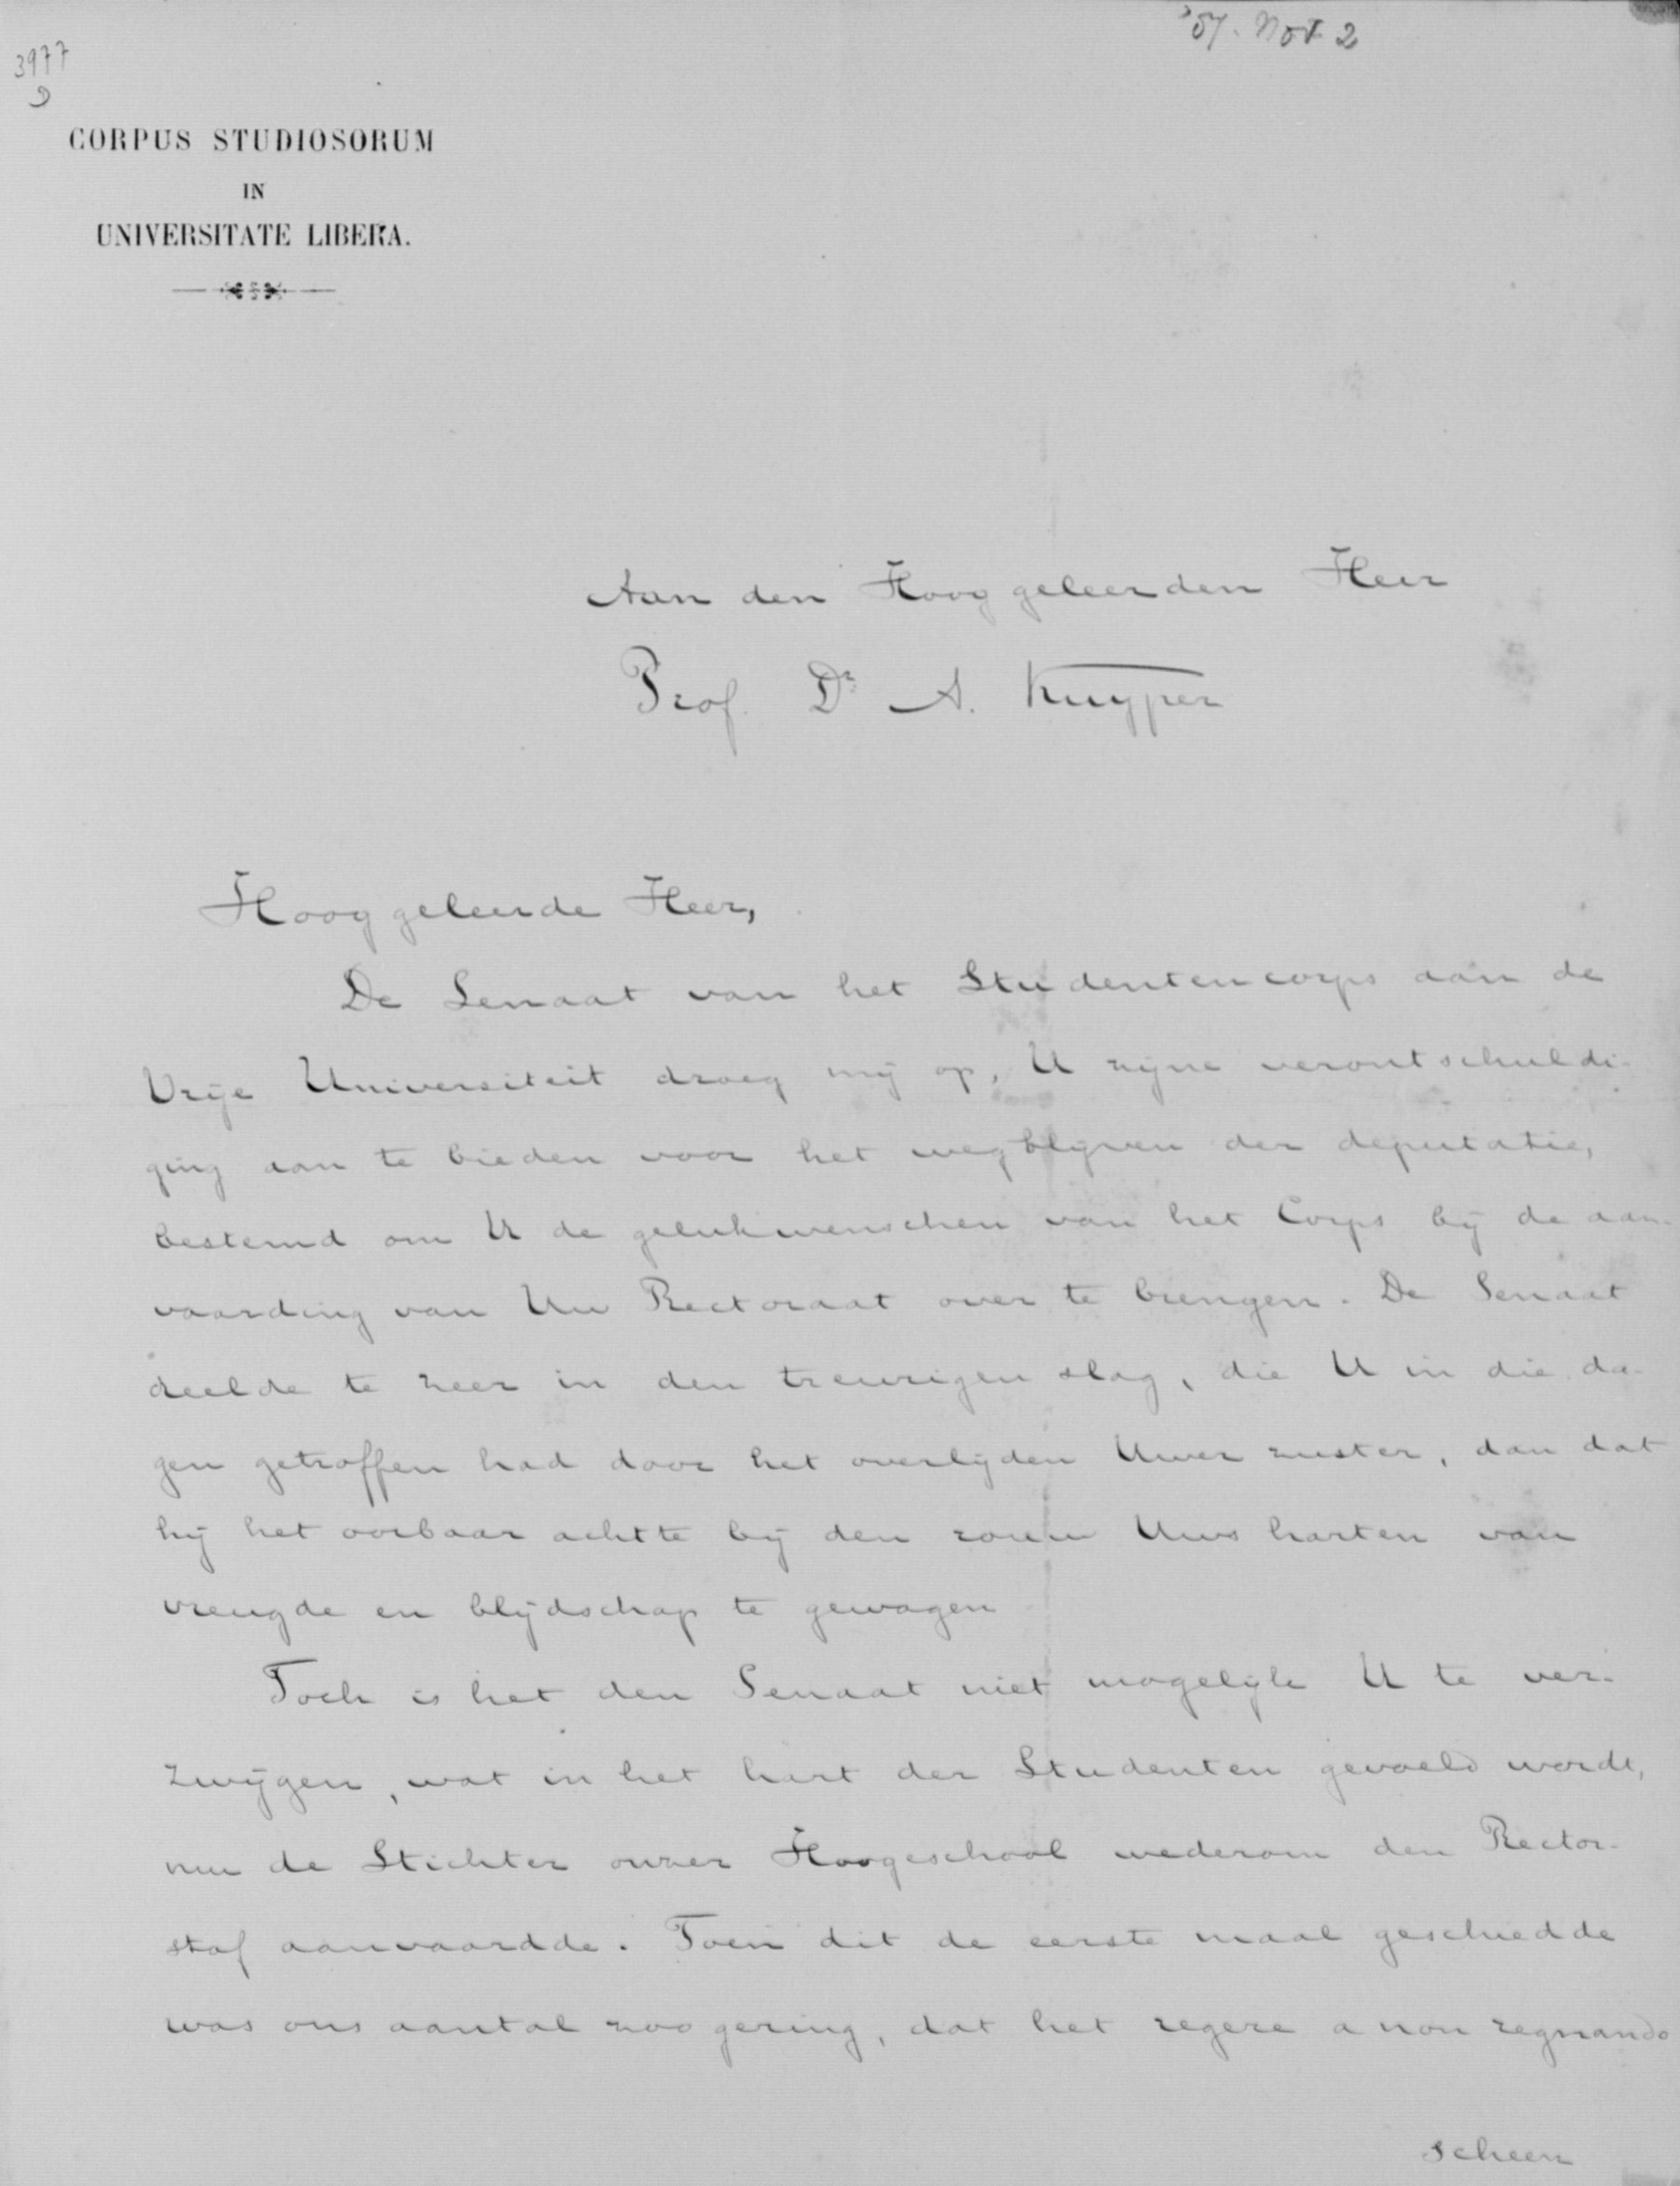 '87. Nov 2
3977
CORPUS STUDIOSORUM
IN
UNIVERSITATE LIBERA.
Aan den Hooggeleerden Heer
Prof. Dr A. Kuyper
Hooggeleerde Heer,
De Senaat van het Studentencorps aan de
Vrije Universiteit droeg mij op, U zijne verontschuldi-
ging aan te bieden voor het wegblijven der deputatie,
bestemd om U de gelukwenschen van het Corps bij de aan-
vaarding van Uw Rectoraat over te brengen. De Senaat
deelde te zeer in den treurigen slag, die U in die da-
gen getroffen had door het overlijden Uwer zuster, dan dat
hij het oorbaar achtte bij den rouw Uws harten van
vreugde en blijdschap te gewagen
Toch is het den Senaat niet mogelijk U te ver-
zwijgen, wat in het hart der Studenten gevoeld wordt,
nu de Stichter onzer Hoogeschool wederom den Rector-
staf aanvaardde. Toen dit de eerste maal geschiedde
was ons aantal zoo gering, dat het regere a non regnando
scheen